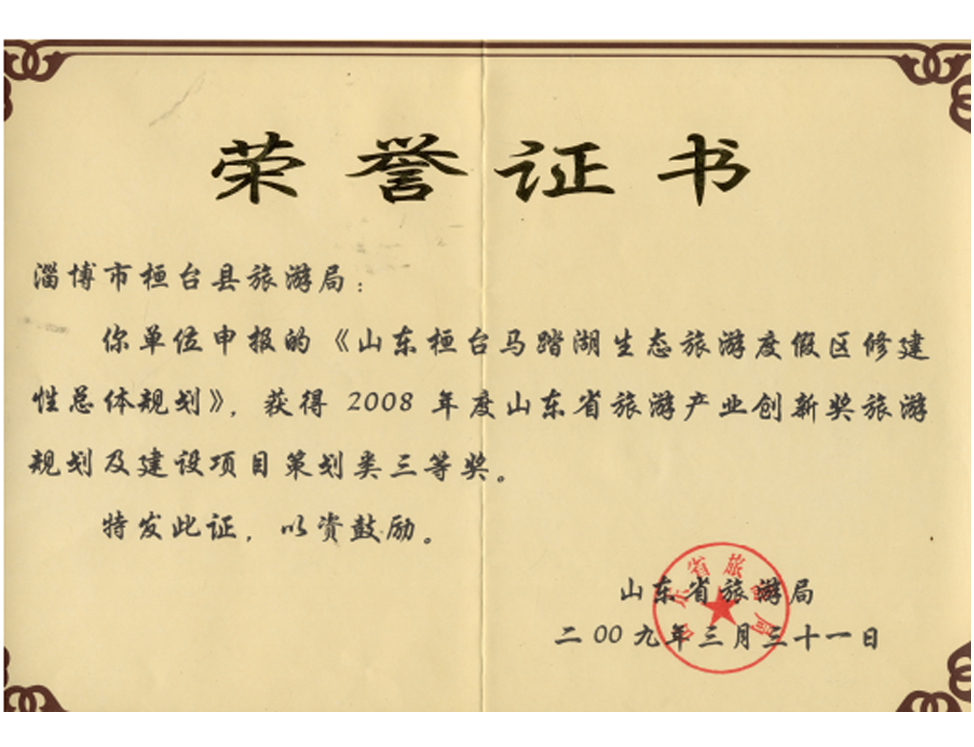 荣誉证书
淄博市桓台县旅游局：
你单位申报的《山东桓台马踏湖生态旅游度假区修建
性总体规划》，获得 2008 年度山东省旅游产业创新奖旅游
规划及建设项目策划类三等奖。
特发此证，以资鼓励。
山东省旅游局
二00九年三月三十一日